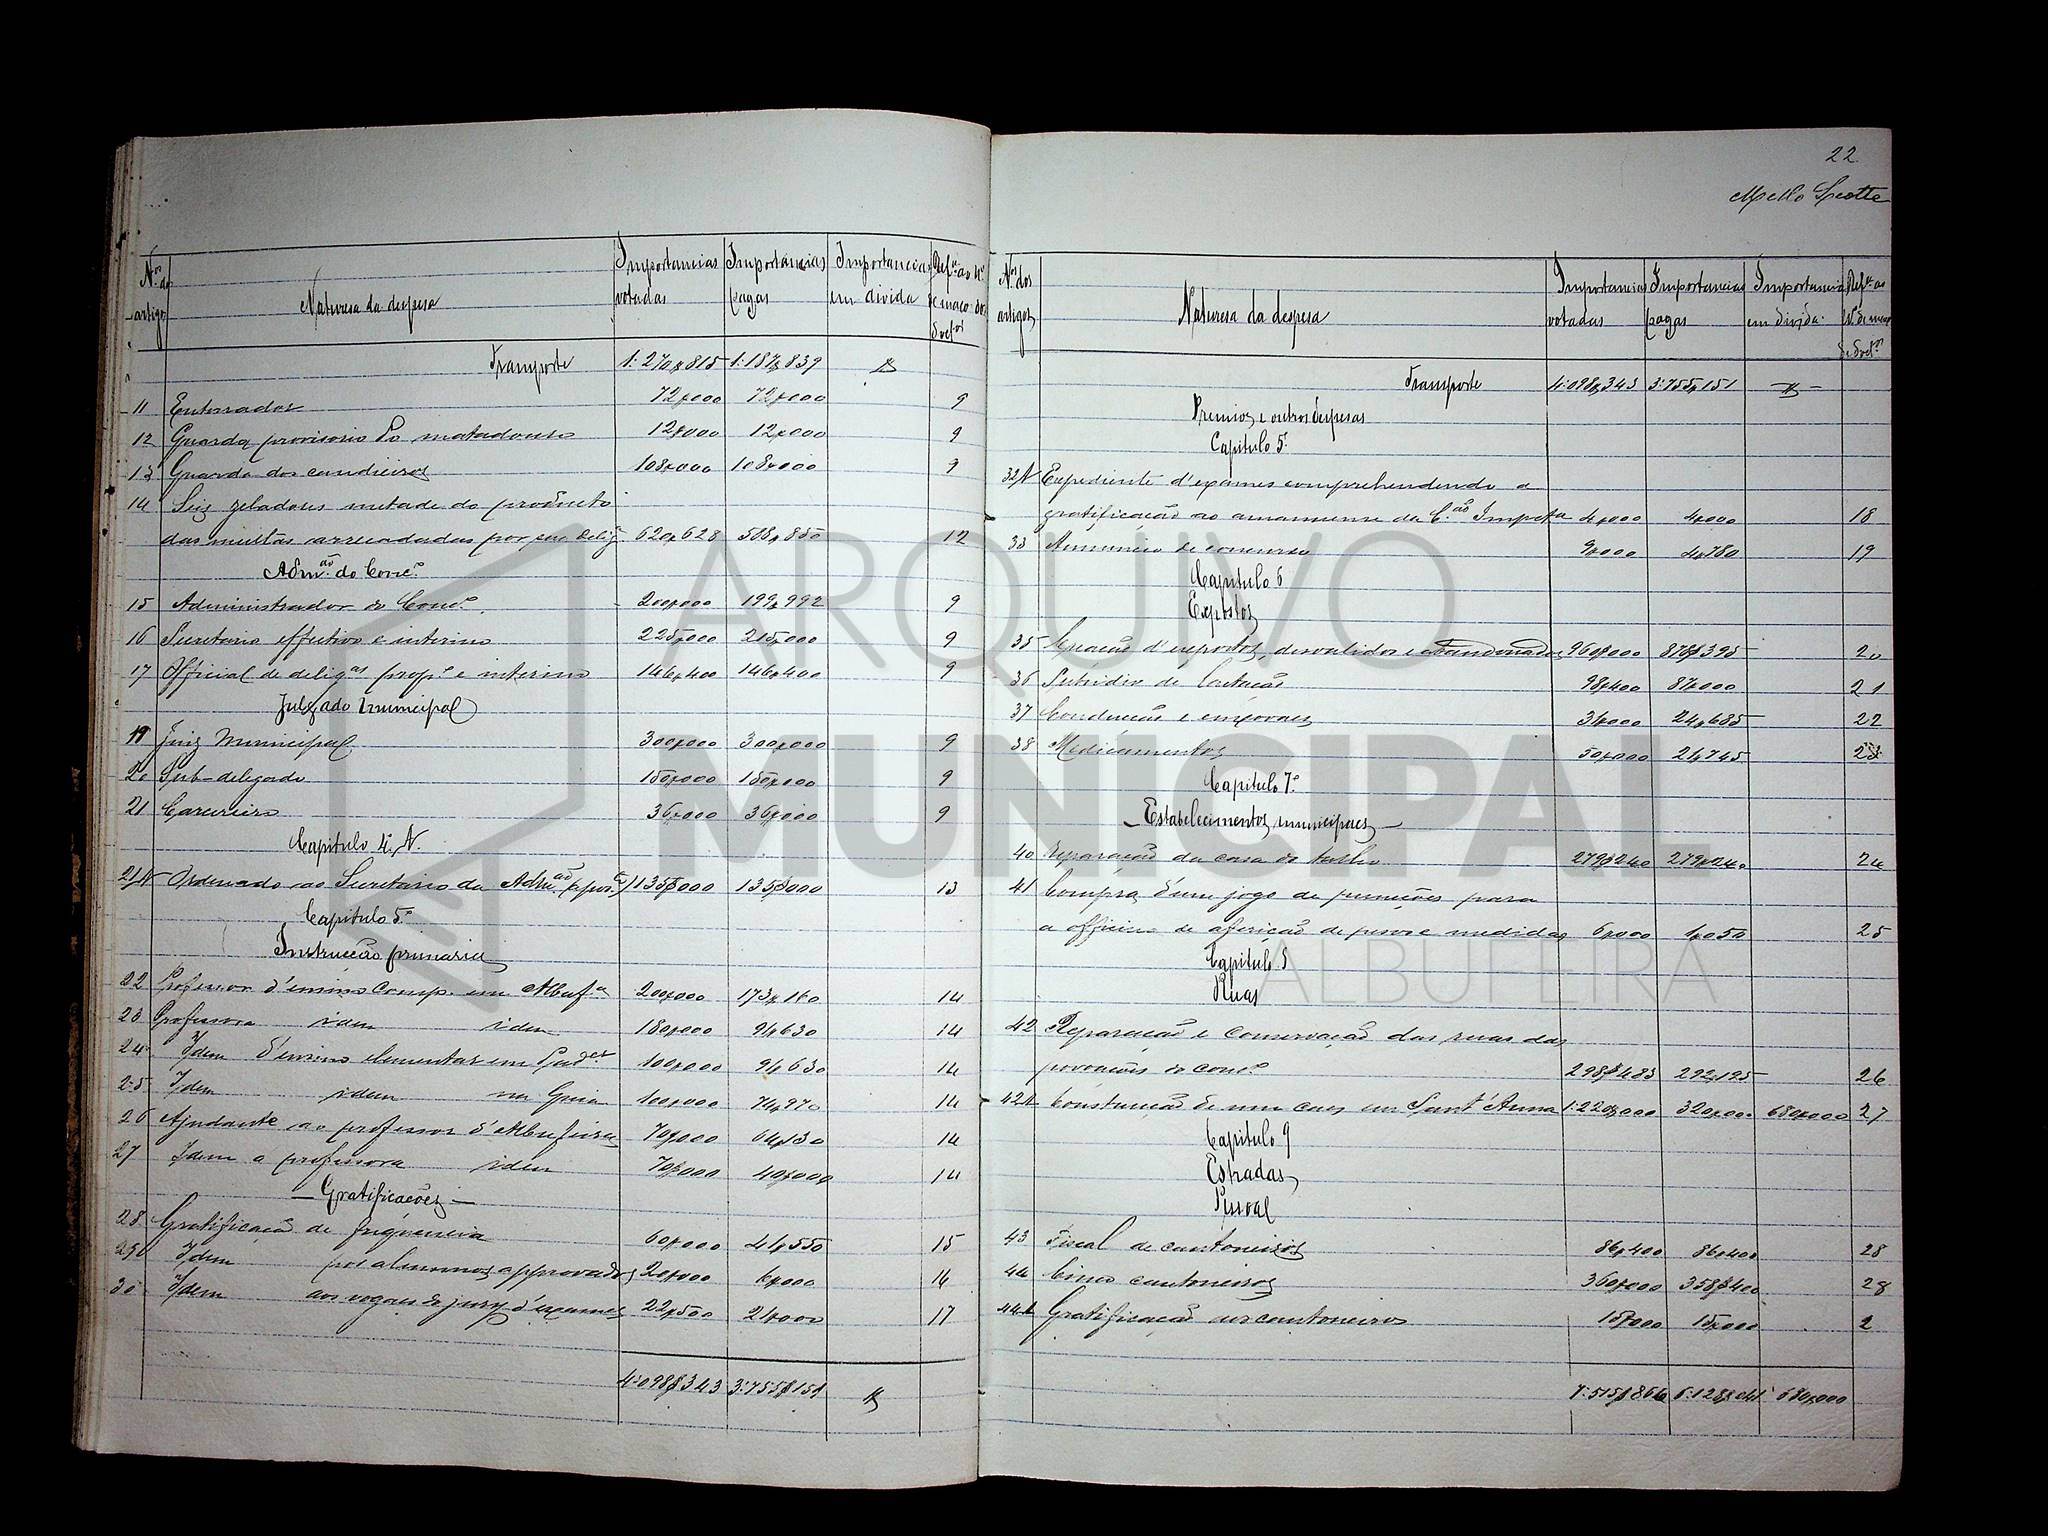 Nos. do artigo Naturesa da despesa Importancias votadas Importancias pagas Importancias em divida Refª. ao nº de maço dos
Transporte 1:270$815 1:187$839
11 Enterrador 72$000 72$000 9
12 Guarda provisorio do matadouro 12$000 12$000 9
13 Guarda dos candieiros 108$000 108$000 9
14 Seis zeladores metade do producto
das multas arrecadadas por sua delig. 620$628 508$850 12
Admão. do Conc.º
15 Administrador do Conc.º 200$000 199$992 9
16 Secretario effectivo e interino 225$000 215$000 9
17 Official de deligas prop.º e interino 146$400 146$400 9
Julgado municipal
19 Juiz Municipal 300$000 300$000 9
20 Sub-delegado 150$000 150$000 9
21 Carcereiro 36$000 36$000 9
Capitulo 4.º A.
21A Ordenado ao Secretario da Admão 135$000 135$000 13
Capitulo 5.º
Instrucção primaria
22 Professor d'ensino comp. em Albufª 200$000 173$160 14
23 Professora idem idem 180$000 94$630 14
24 Idem d'ensino elementar em Padres 100$000 94$630 14
25 Idem idem na Guia 100$000 74$970 14
26 Ajudante ao professor d'Albufeira 70$000 64$130 14
27 Idem a professora idem 70$000 40$000 14
Gratificações
28 Gratificação de frequencia 60$000 41$550 15
29 Idem por alumnos approvados 20$000 6$000 16
30 Idem aos vogaes do jury d'exames 22$500 21$000 17
4:098$343 3:755$151
22
Mello Leotte
Nos. dos artigos Naturesa da despesa Importancias votadas Importancias pagas Importancia em divida Refª. ao Nº. de maço
Transporte 4:098$343 3:755$151
Premios e outras despesas
Capitulo 5º
32A Expediente d'exames comprehendendo a
gratificação ao amanuense da 4$000 4$000 18
33 Annuncio de concurso 9$000 4$780 19
Capitulo 6
Expostos
35 Creação d'expostos, desvalidos e abandonados 960$000 876$395 20
36 Subsidio de lactação 98$400 87$000 21
37 Conducção e enxovaes 34$000 24$685 22
38 Medicamentos 50$000 26$745 23
Capitulo 7.º
Estabelecimentos municipaes
40 Reparação da casa do talho 279$240 279$240 24
41 Compra d'um jogo de punções para
a officina de aferição de pesos e medidas 6$000 1$050 25
Capitulo 8
Ruas
42 Reparação e conservação das ruas das
povoações do conc.º 298$483 292$195 26
42A Construcção de um caes em Sant'Anna 1:220$000 320$000 680$000 27
Capitulo 9
Estradas
Pessoal
43 Fiscal de cantoneiros 86$400 86$400 28
44 Cinco cantoneiros 360$000 358$400 28
44A Gratificação aos cantoneiros 15$000 15$000 2
7:515$866 680$000
ARQUIVO
MUNICIPAL
ALBUFEIRA